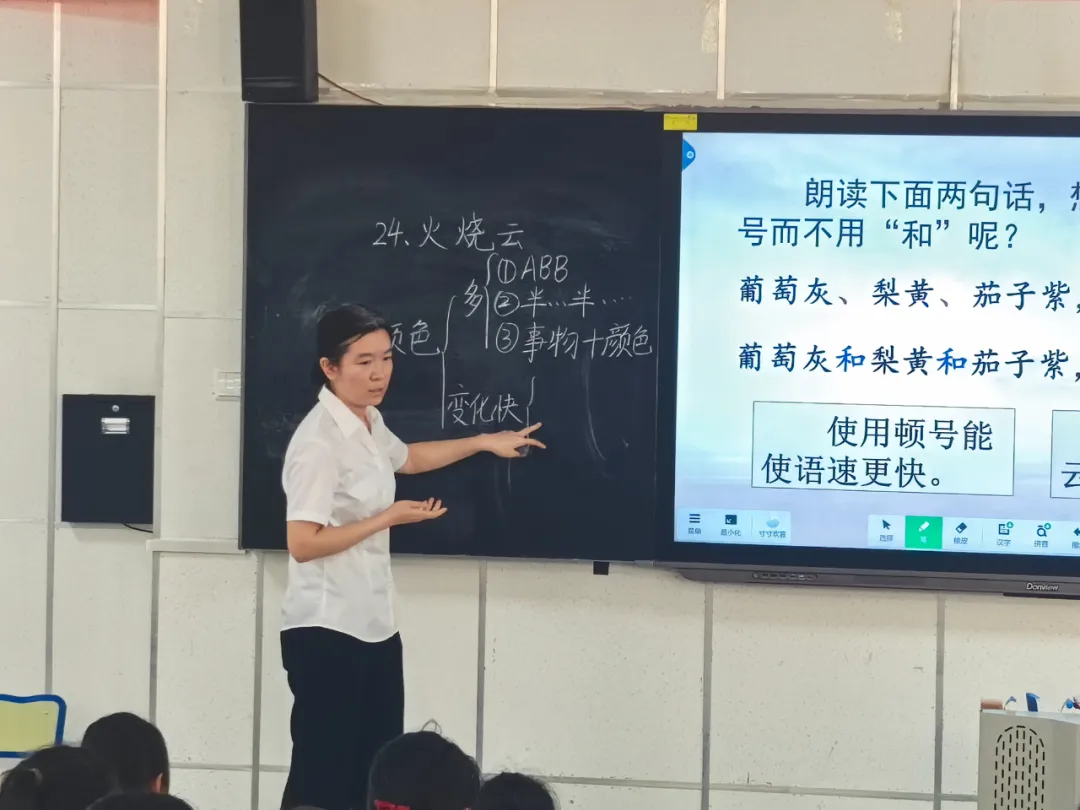 24、火烧云
①ABB
多
②半…半……
③事物+颜色
颜色
变化快
朗读下面两句话，想
号而不用“和”呢？
葡萄灰、梨黄、茄子紫，
葡萄灰和梨黄和茄子紫，
使用顿号能
使语速更快。
云
菜单
最小化
选择
笔
橡皮
汉字
拼音
Donview